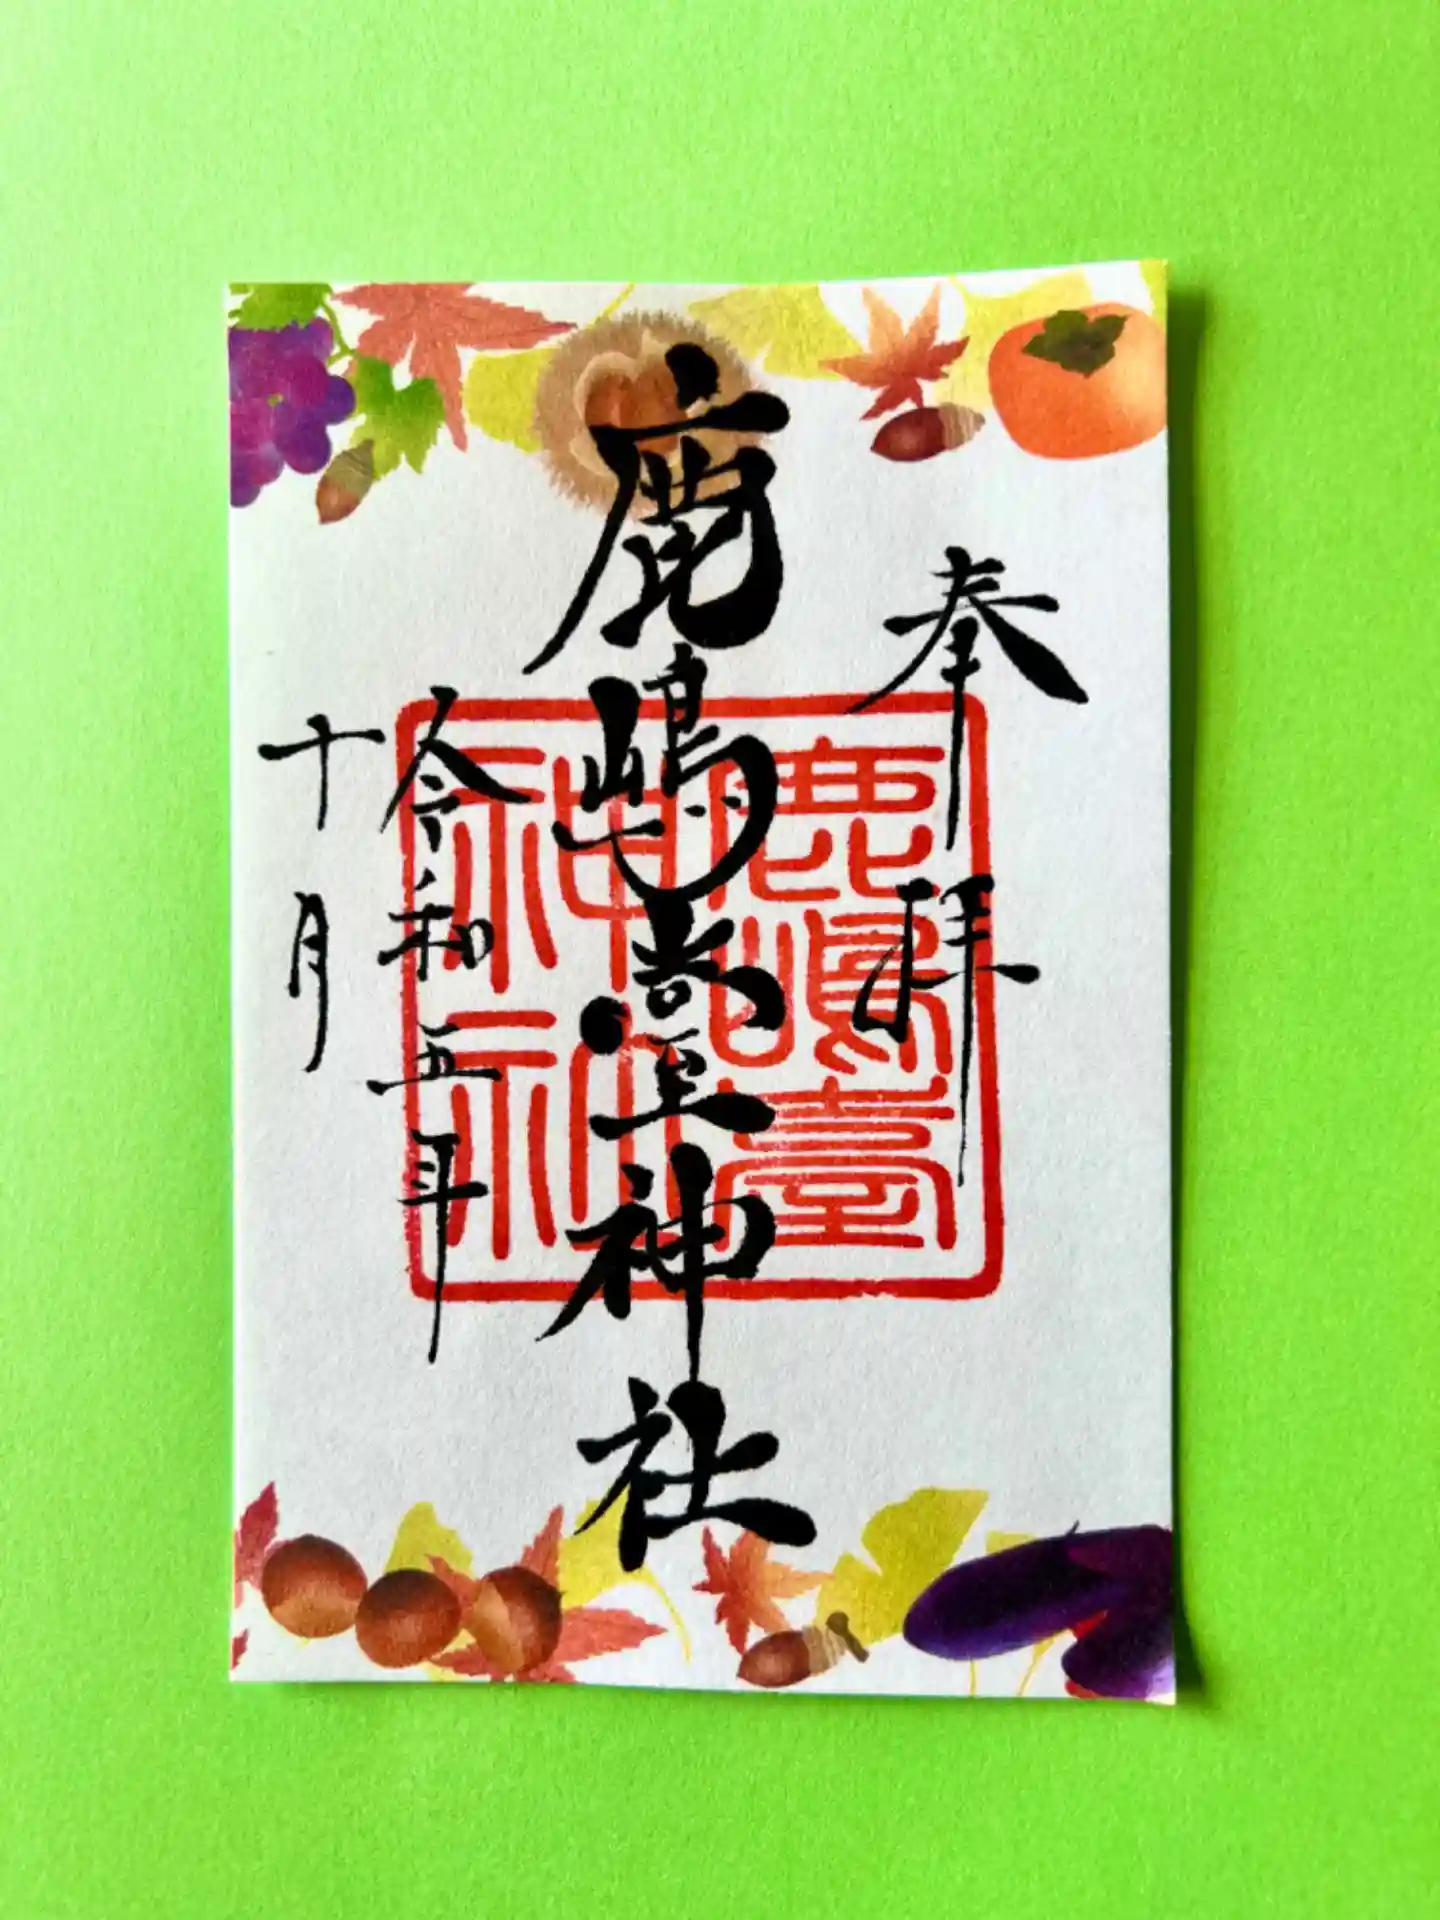 奉拝
鹿嶋臺神社
令和五年
十月
鹿嶋臺
神社